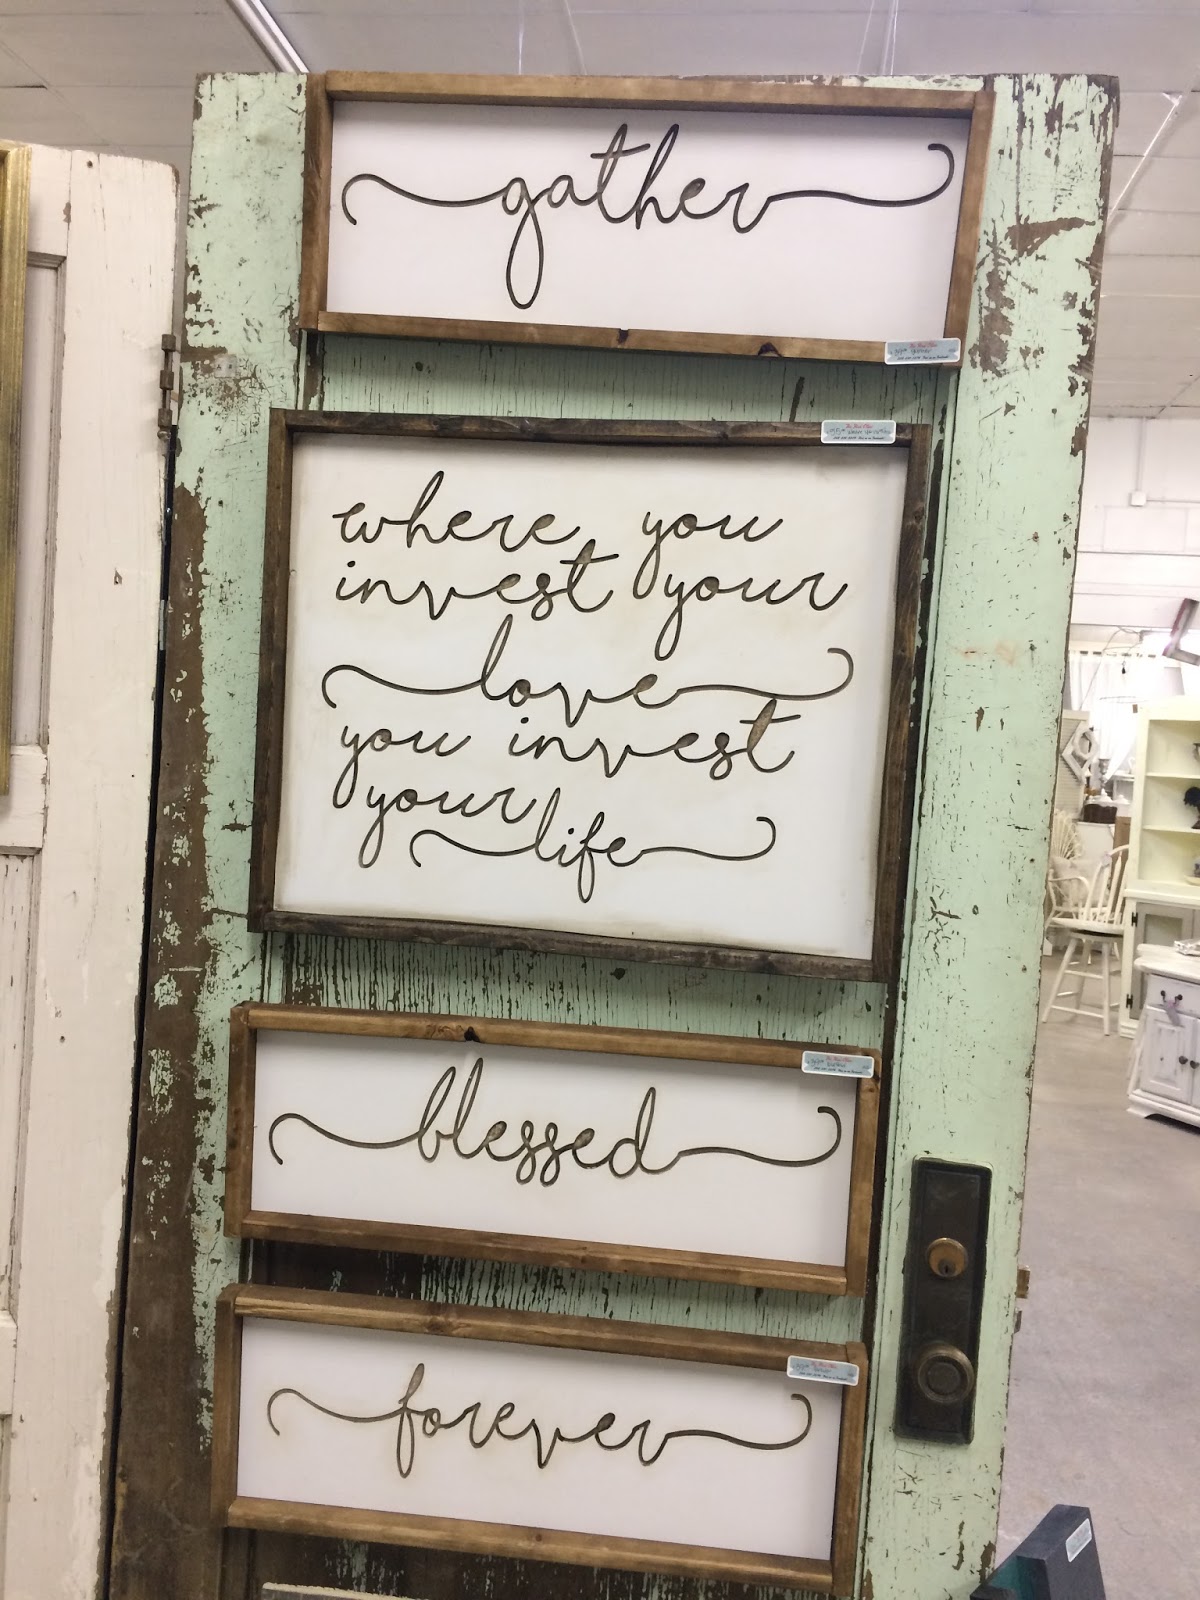 gather
where you
invest your
love
you invest
your
life
blessed
forever